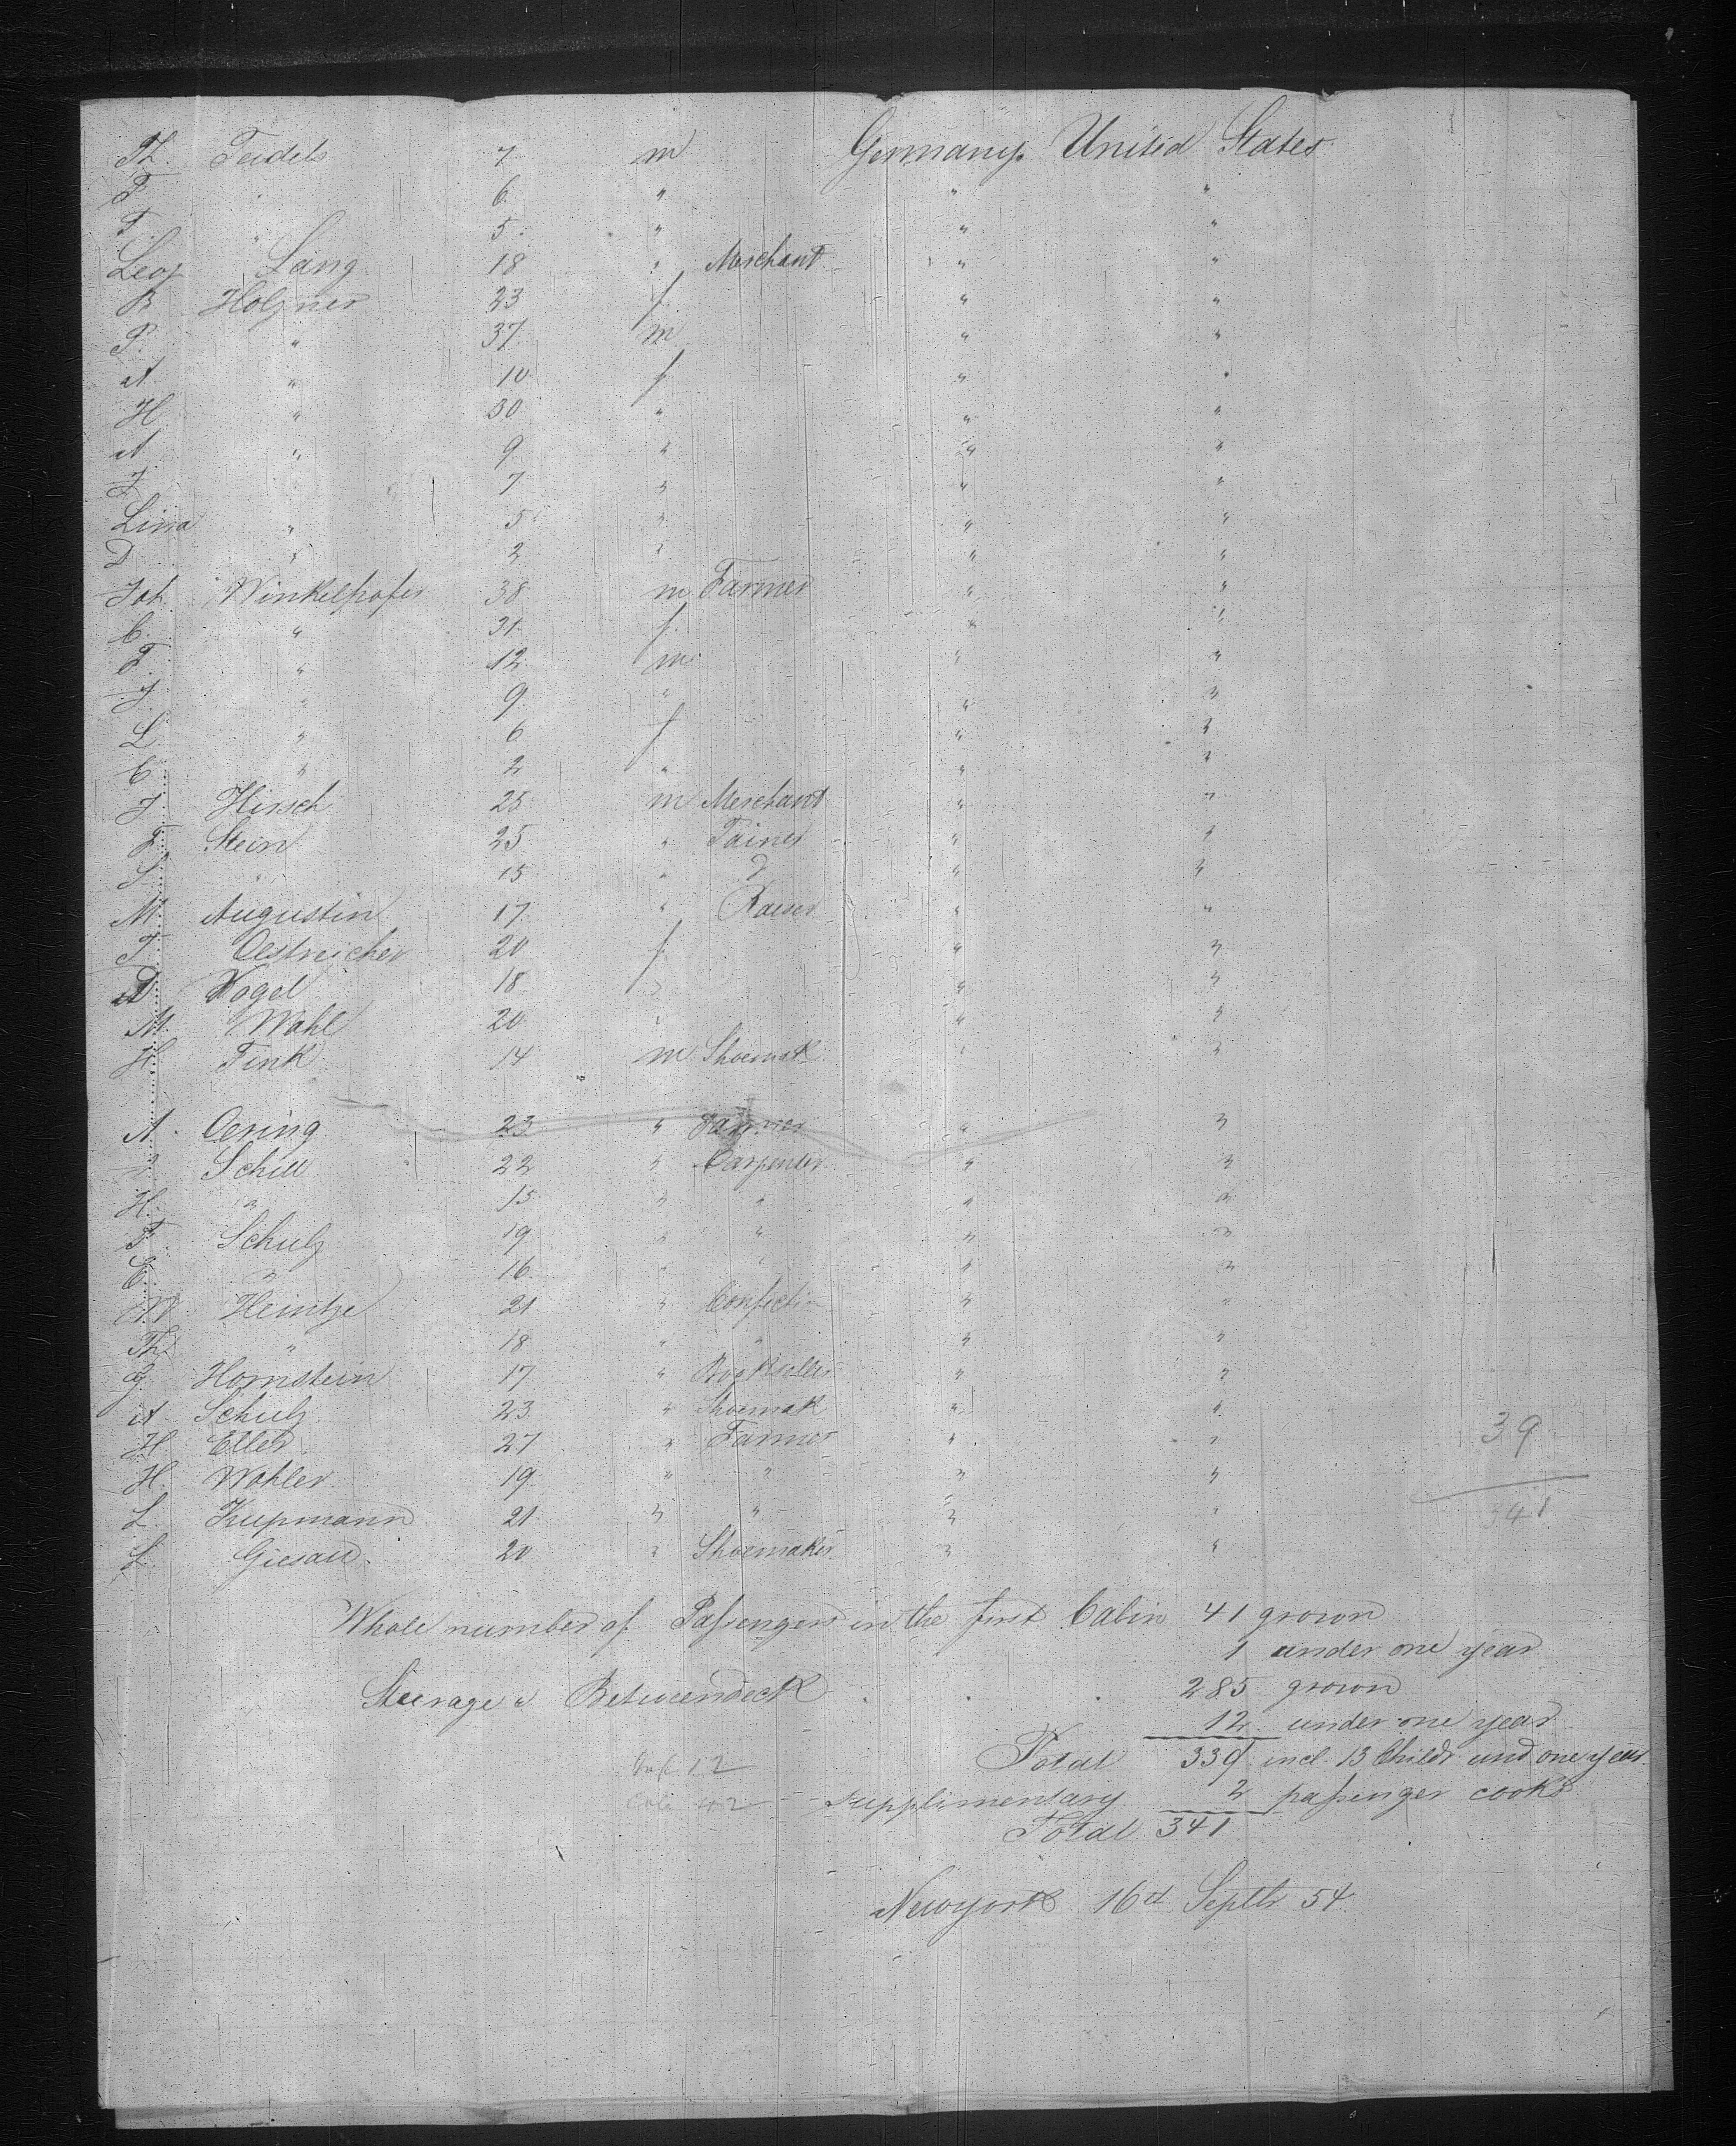 Th. Teidels 7 m Germany United States
F " 6 " " "
F. " 5 " " "
Leop Lang 18 " Merchant " "
B Holzner 23 f " "
P. " 37 m " "
A " 10 f " "
H " 30 " " "
A " 9 " " "
J " 7 " " "
Lina " 5 " " "
D " 2 " " "
Joh. Winkelhofer 38 m Farmer " "
C. " 31 f. " "
F. " 12 m " "
J. " 9 " " "
L " 6 f " "
C " 2 " " "
J Hirsch 25 m Merchant " "
F. Stein 25 " " "
S " 15 " " "
M. Augustin 17 " " "
T. Oestreicher 20 f " "
D Vogel 18 " " "
M. Wahl 20 " " "
H Fink 14 m Shoemak " "
A. Oering 23 " Farmer " "
J Schill 22 " Carpenter " "
H. " 15 " " " "
F. Schulz 19 " " " "
C. " 16 " " " "
W Heintze 21 " Confecti " "
Th " 18 " " " "
G Hornstein 17 " Bookseller " "
A Schulz 23 " Shoemak " "
H. Eller 27 " Farmer " " 39
H. Wohler 19 " " " "
L. Kupmann 21 " " " " 341
L. Giesau 20 " Shoemaker " "
Whole number of Passengers in the first Cabin 41 grown
1 under one year
Steerage " Betweendeck . . . 285 grown
12 under one year
Inf 12 Total 339 incl. 13 Childr und one year.
supplimentary 2 passenger cooks
Total 341
Newyork 16th Septbr 54